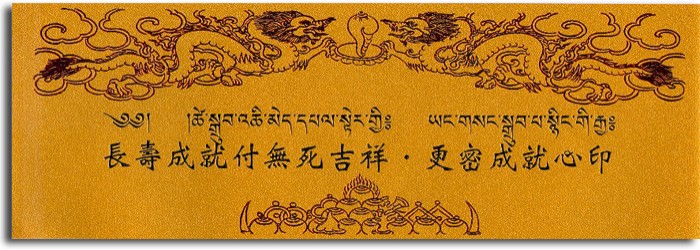 ༄༅། །ཚེ་སྒྲུབ་འཆི་མེད་དཔལ་སྟེར་གྱི༔ ཡང་གསང་སྒྲུབ་པ་སྙིང་གི་རྒྱ༔
長壽成就付無死吉祥・更密成就心印